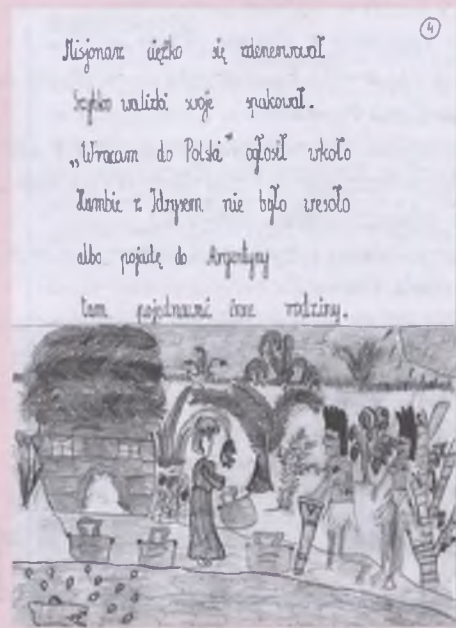 4
Misjonarz ciężko się zdenerwował
Szybko walizki swoje spakował.
„Wracam do Polski" ogłosił wkoło
z Idrysem nie było wesoło
albo pojadę do Argentyny
tam pojednawić inne rodziny.